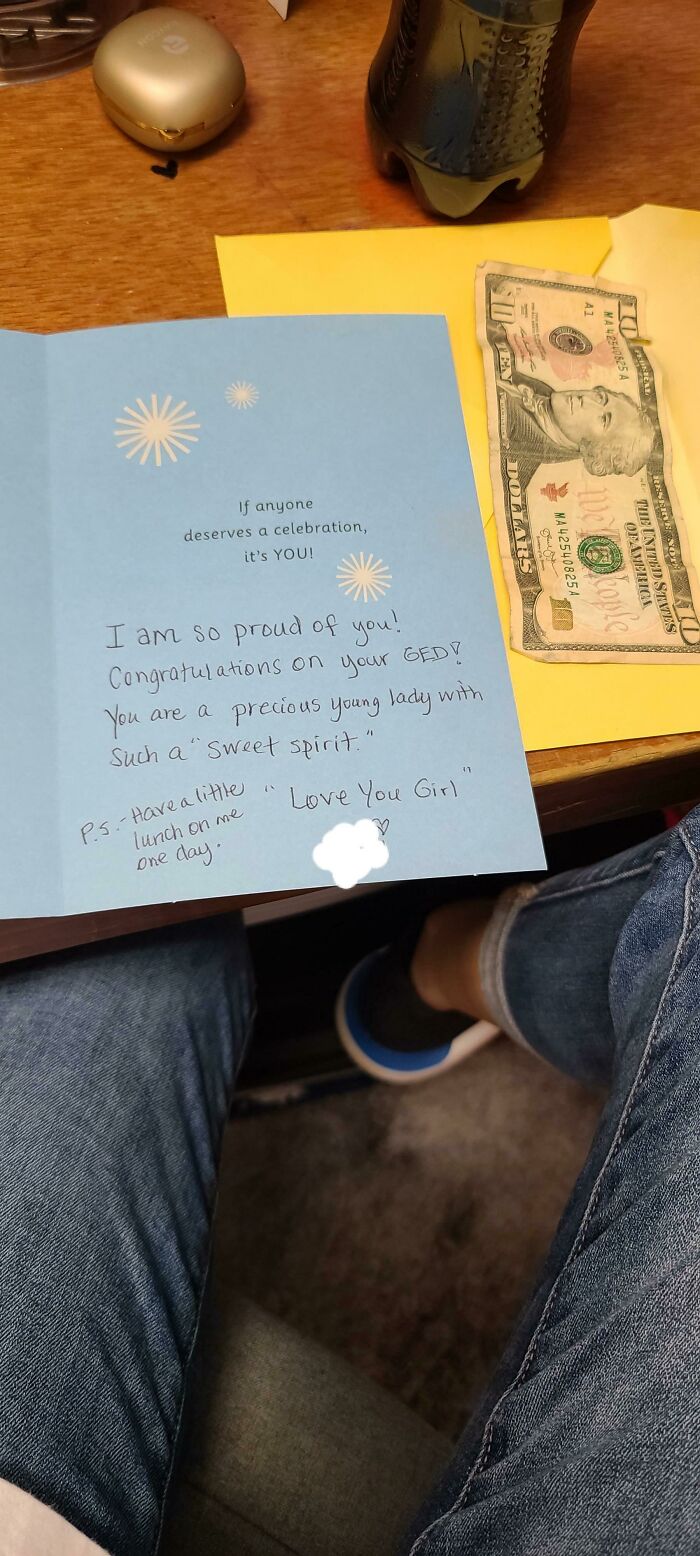 If anyone
deserves a celebration,
it's YOU!
I am so proud of you!
Congratulations on your GED!
You are a precious young lady with
such a "sweet spirit."
"Love You Girl"
P.S.- Have a little
lunch on me
one day.
10
A1
MA 42540825 A
10
TEN
DOLLARS
We the People
MA 42540825 A
FEDERAL RESERVE NOTE
THE UNITED STATES
OF AMERICA
10